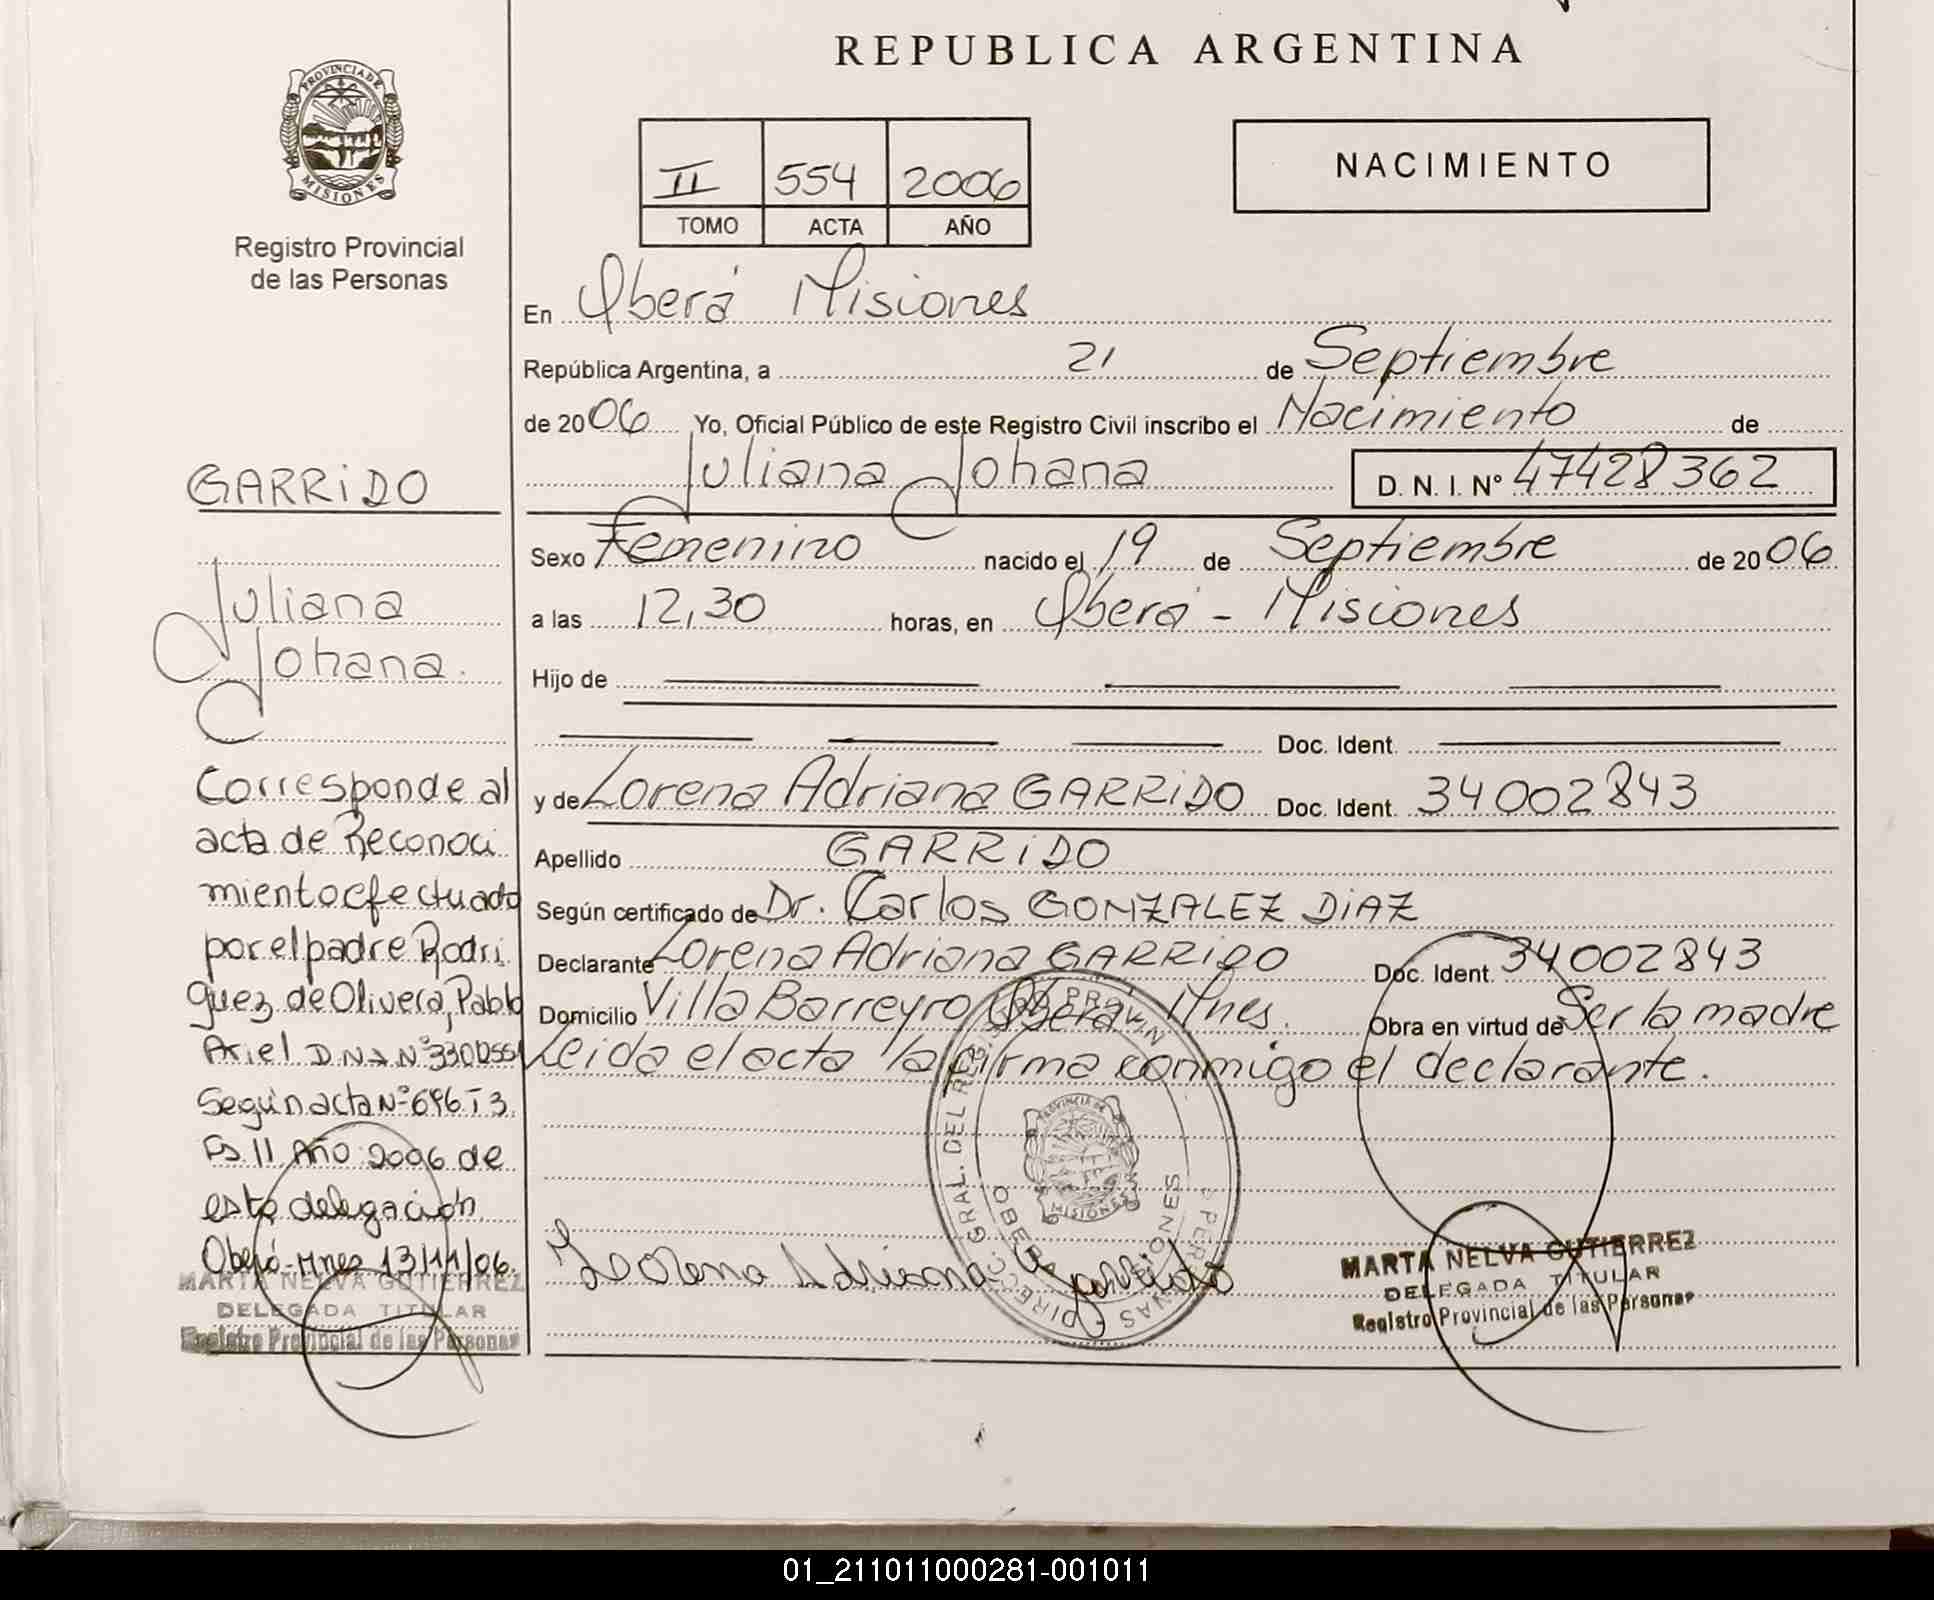 REPUBLICA ARGENTINA
PROVINCIA DE
MISIONES
Registro Provincial
de las Personas
II 554 2006
TOMO ACTA AÑO
NACIMIENTO
En Oberá Misiones
República Argentina, a 21 de Septiembre
de 2006 Yo, Oficial Público de este Registro Civil inscribo el Nacimiento de
Juliana Johana D. N. I. N° 47428362
Sexo Femenino nacido el 19 de Septiembre de 2006
a las 12,30 horas, en Oberá - Misiones
Hijo de
Doc. Ident.
y de Lorena Adriana GARRiDO Doc. Ident. 34002843
Apellido GARRiDO
Según certificado de Dr. Carlos GONZALEZ DiAZ
Declarante Lorena Adriana GARRiDO Doc. Ident. 34002843
Domicilio Villa Barreyro Oberá Mnes. Obra en virtud de Ser la madre
Leida el acta la firma conmigo el declarante.
Lorena Adriana Garrido
MARTA NELVA GUTIERREZ
DELEGADA TITULAR
Registro Provincial de las Personas
GARRiDO
Juliana
Johana.
Corresponde al
acta de Reconoci
miento efectuado
por el padre Rodri
guez de Olivera, Pablo
Ariel D.N.I. N°
Según acta N° 696 T 3.
Fs 11 Año 2006 de
esta delegación.
Oberá-Mnes 13/11/06.
MARTA NELVA GUTIERREZ
DELEGADA TITULAR
Registro Provincial de las Personas
PROVINCIA DE
MISIONES
OBERA MISIONES
01_211011000281-001011